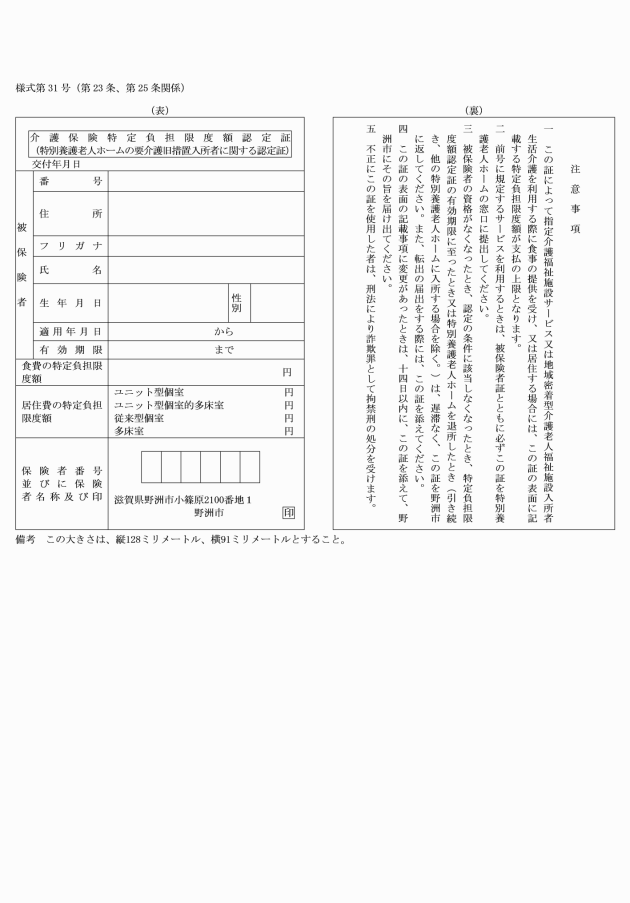 様式第 31 号（第 23 条、第 25 条関係）
（表）
介護保険特定負担限度額認定証
（特別養護老人ホームの要介護旧措置入所者に関する認定証）
交付年月日
被保険者
番号
住所
フリガナ
氏名
生年月日
性別
適用年月日
から
有効期限
まで
食費の特定負担限
度額
円
居住費の特定負担
限度額
ユニット型個室 円
ユニット型個室的多床室 円
従来型個室 円
多床室 円
保険者番号
並びに保険
者名称及び印
滋賀県野洲市小篠原2100番地１
野洲市
印
（裏）
注意事項
一　この証によって指定介護福祉施設サービス又は地域密着型介護老人福祉施設入所者
生活介護を利用する際に食事の提供を受け、又は居住する場合には、この証の表面に記
載する特定負担限度額が支払の上限となります。
二　前号に規定するサービスを利用するときは、被保険者証とともに必ずこの証を特別養
護老人ホームの窓口に提出してください。
三　被保険者の資格がなくなったとき、認定の条件に該当しなくなったとき、特定負担限
度額認定証の有効期限に至ったとき又は特別養護老人ホームを退所したとき（引き続
き、他の特別養護老人ホームに入所する場合を除く。）は、遅滞なく、この証を野洲市
に返してください。また、転出の届出をする際には、この証を添えてください。
四　この証の表面の記載事項に変更があったときは、十四日以内に、この証を添えて、野
洲市にその旨を届け出てください。
五　不正にこの証を使用した者は、刑法により詐欺罪として拘禁刑の処分を受けます。
備考　この大きさは、縦128ミリメートル、横91ミリメートルとすること。